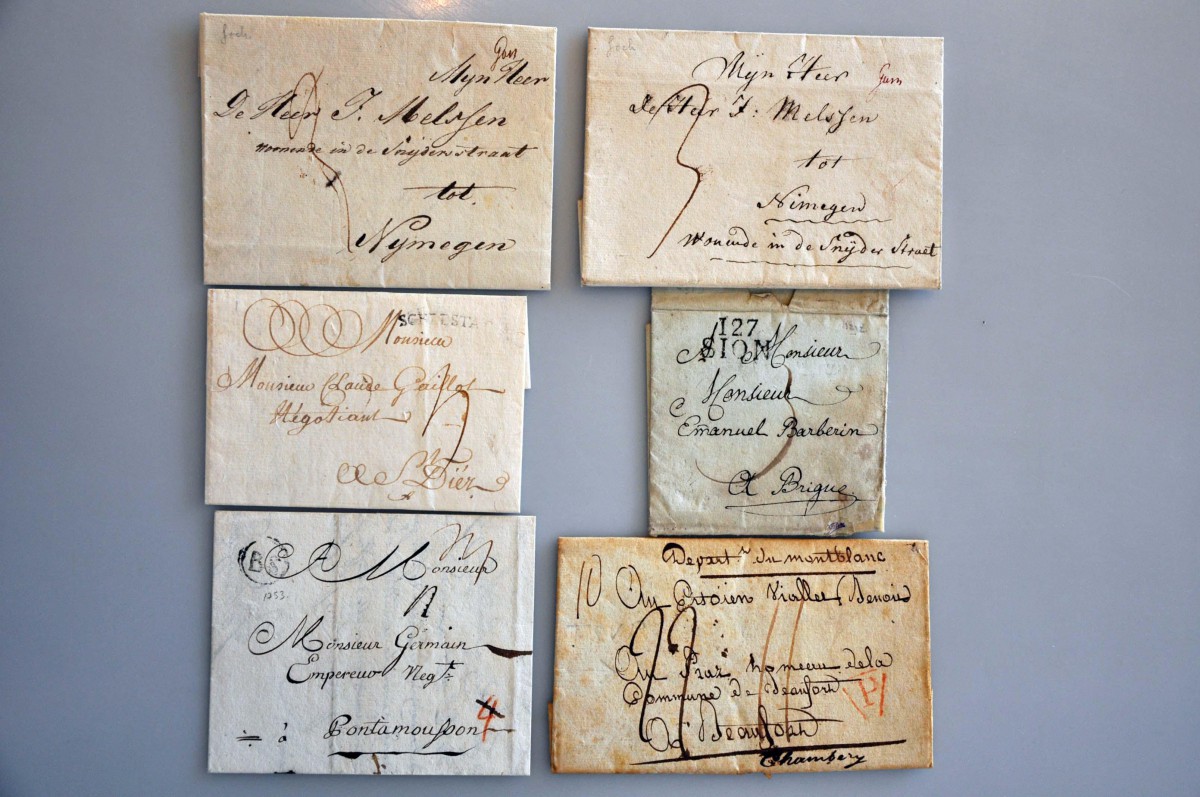 Goch
Mijn Heer
De Heer J. Melssen
woonende in de Snijderstraat
tot
Nijmegen
Goch
Mijn Heer
de Heer J: Melssen
tot
Nimegen
Wonende in de Snijder Straet
3
Monsieur
Monsieur Claude Gaillot
Négotiant
A St Diéz
127
SION
A Monsieur
Monsieur
Emanuel Barberin
A Brigue
B
1753
A Monsieur
Monsieur Germain
Empereur Negt.
à Pontamousson
4
Depart.t du montblanc
10
Au Citoïen Viallet, Benoit
Au Praz hameau dela
Commune de Beaufort
P
A Beaufort
Chambery